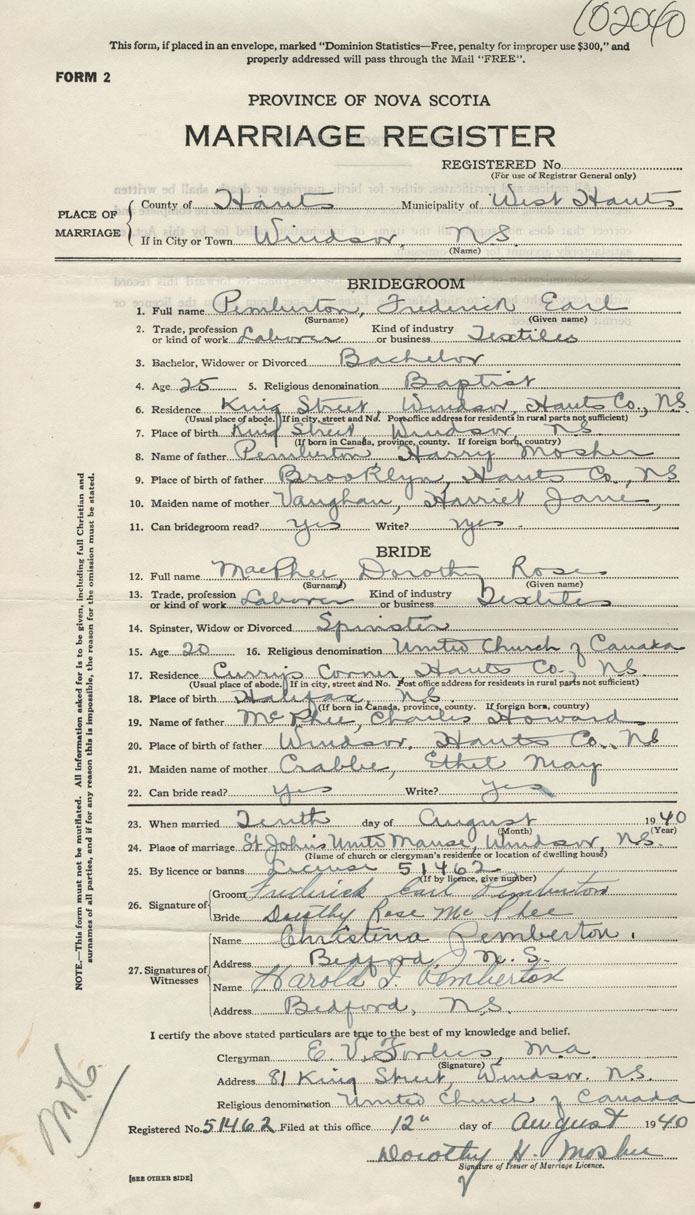 102040
This form, if placed in an envelope, marked "Dominion Statistics—Free, penalty for improper use $300," and
properly addressed will pass through the Mail "FREE".
FORM 2
PROVINCE OF NOVA SCOTIA
MARRIAGE REGISTER
REGISTERED No.
(For use of Registrar General only)
PLACE OF MARRIAGE
County of Hants Municipality of West Hants
If in City or Town Windsor, N.S.
(Name)
BRIDEGROOM
1. Full name Pemberton, Frederick Earl
(Surname) (Given name)
2. Trade, profession or kind of work Laborer Kind of industry or business Textiles
3. Bachelor, Widower or Divorced Bachelor
4. Age 25 5. Religious denomination Baptist
6. Residence King Street, Windsor Hants Co., N.S
(Usual place of abode. If in city, street and No. Post office address for residents in rural parts not sufficient)
7. Place of birth King Street Windsor N.S
(If born in Canada, province, county. If foreign born, country)
8. Name of father Pemberton Harry Mosher
9. Place of birth of father Brooklyn, Hants Co., N.S
10. Maiden name of mother Vaughan, Harriet Jane,
11. Can bridegroom read? yes Write? yes
BRIDE
12. Full name MacPhee Dorothy Rose
(Surname) (Given name)
13. Trade, profession or kind of work Laborer Kind of industry or business Textiles
14. Spinster, Widow or Divorced Spinster
15. Age 20 16. Religious denomination United Church of Canada
17. Residence Currys Corner, Hants Co., N.S.
(Usual place of abode. If in city, street and No. Post office address for residents in rural parts not sufficient)
18. Place of birth Halifax, N.S.
(If born in Canada, province, county. If foreign born, country)
19. Name of father McPhee, Charles Howard
20. Place of birth of father Windsor, Hants Co., N.S
21. Maiden name of mother Crabbe, Ethel May
22. Can bride read? yes Write? yes
23. When married Tenth day of August 1940
(Month) (Year)
24. Place of marriage St John's United Manse, Windsor, N.S.
(Name of church or clergyman's residence or location of dwelling house)
25. By licence or banns License 51462
(If by licence, give number)
26. Signature of
Groom Frederick Earl Pemberton
Bride Dorothy Rose Mc Phee
27. Signatures of Witnesses
Name Christina Pemberton.
Address Bedford, N.S.
Name Harold J. Pemberton
Address Bedford, N.S.
I certify the above stated particulars are true to the best of my knowledge and belief.
Clergyman E. V. Forbes, M.a
(Signature)
Address 81 King Street, Windsor. N.S.
Religious denomination United Church of Canada
Registered No. 51462 Filed at this office 12" day of August 1940
Dorothy H. Mosher
Signature of Issuer of Marriage Licence.
[SEE OTHER SIDE]
NOTE.—This form must not be mutilated. All information asked for is to be given, including full Christian and
surnames of all parties, and if for any reason this is impossible, the reason for the omission must be stated.